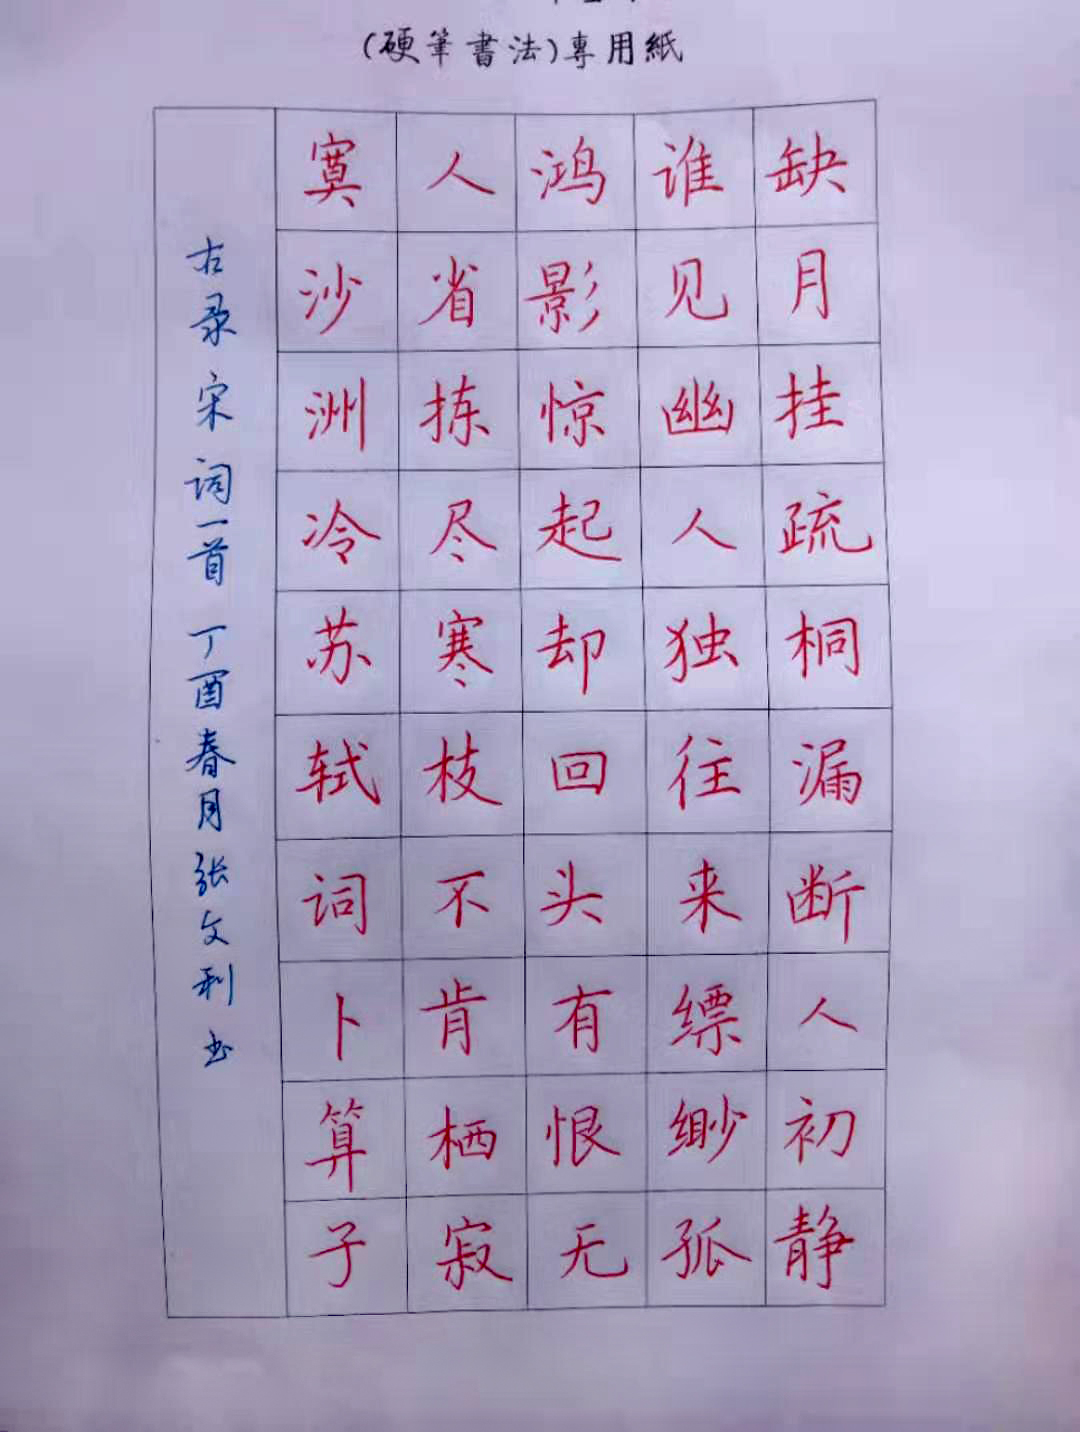 (硬筆書法)專用紙
缺月挂疏桐漏断人初静
谁见幽人独往来缥缈孤
鸿影惊起却回头有恨无
人省拣尽寒枝不肯栖寂
寞沙洲冷苏轼词卜算子
右录宋词一首丁酉春月张文利书